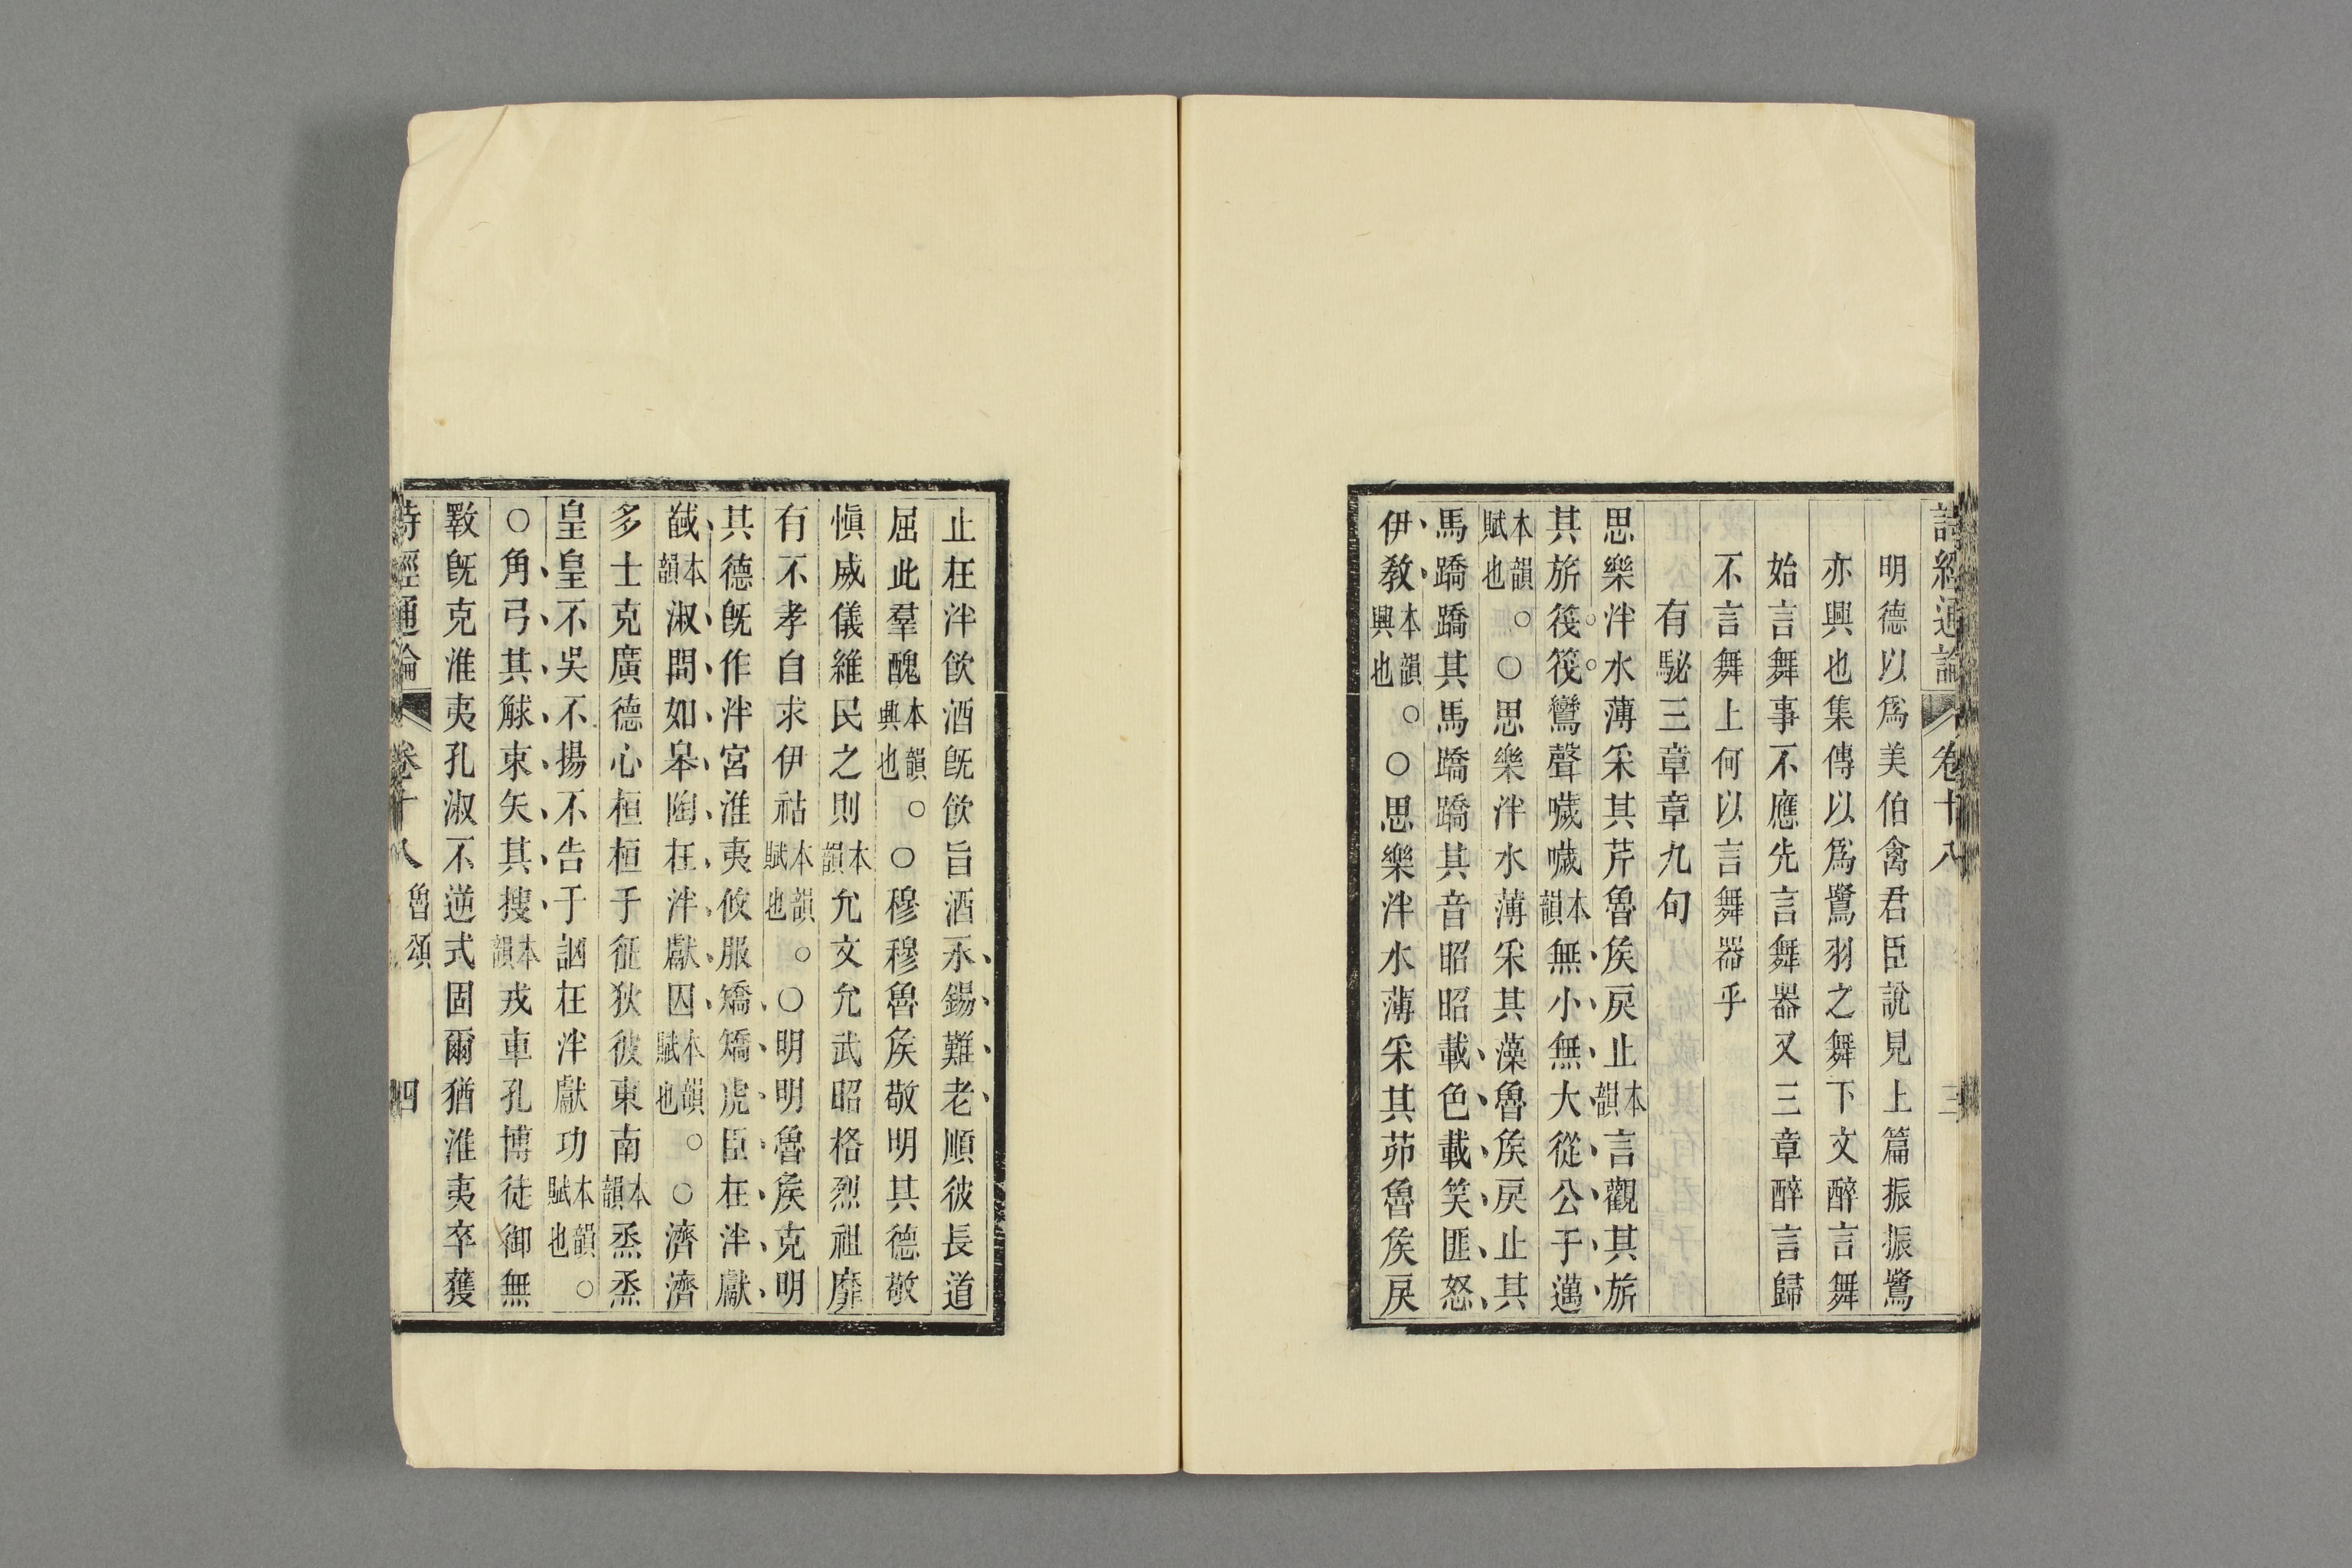 詩經通論 卷十八 三
明德以爲美伯禽君臣說見上篇振振鷺
亦興也集傳以爲鷺羽之舞下文醉言舞
始言舞事不應先言舞器又三章醉言歸
不言舞上何以言舞器乎
有駜三章章九句
思樂泮水薄采其芹魯矦戾止本韻言觀其旂
其旂筏筏鸞聲噦噦本韻無小無大從公于邁
本韻。賦也○思樂泮水薄采其藻魯矦戾止其
馬蹻蹻其馬蹻蹻其音昭昭載色載笑匪怒
伊敎本韻。興也○思樂泮水薄采其茆魯矦戾
止在泮飮酒旣飮旨酒永錫難老順彼長道
屈此羣醜本韻。興也○穆穆魯矦敬明其德敬
愼威儀維民之則本韻允文允武昭格烈祖靡
有不孝自求伊祜本韻。賦也○明明魯矦克明
其德旣作泮宮淮夷攸服矯矯虎臣在泮獻
馘本韻淑問如皋陶在泮獻囚本韻。賦也○濟濟
多士克廣德心桓桓于征狄彼東南本韻烝烝
皇皇不吳不揚不告于訩在泮獻功本韻。賦也
○角弓其觩束矢其搜本韻戎車孔博徒御無
斁旣克淮夷孔淑不逆式固爾猶淮夷卒獲
詩經通論 卷十八 魯頌 四